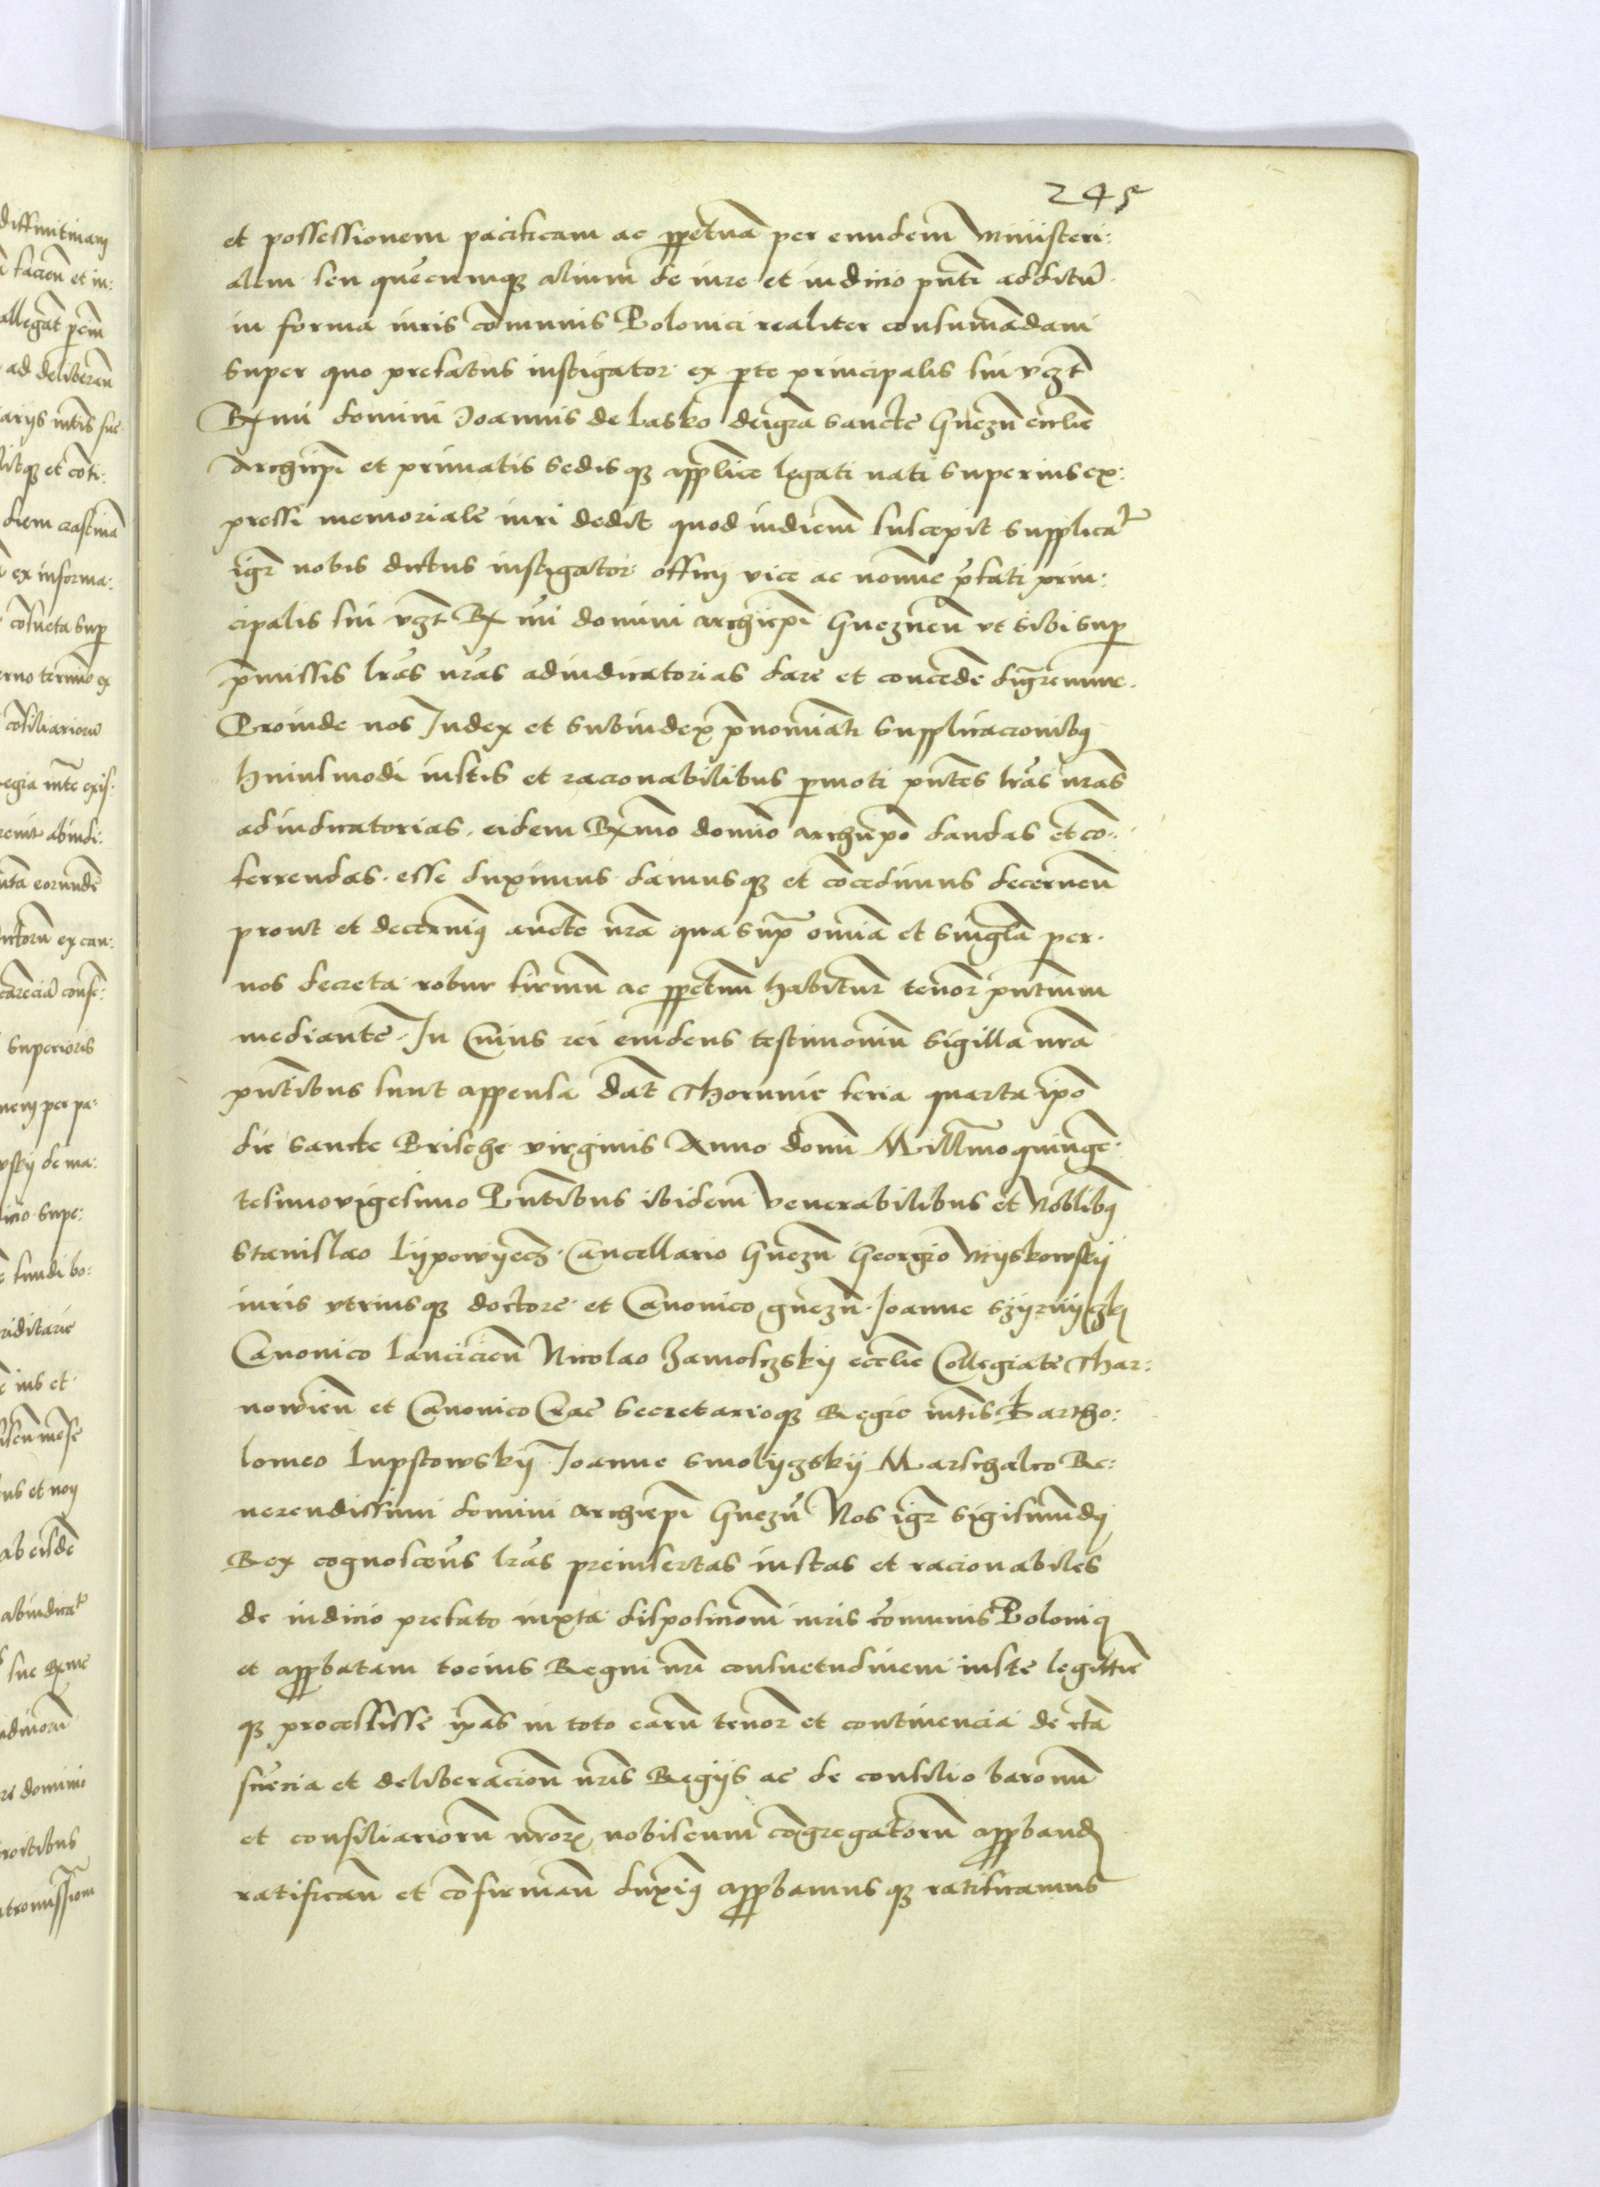 245
et possessionem pacificam ac ppetuã per eundem Ministeri:
alem seu quecumqȝ alium de iure et iudicio pñti additũ
in forma iuris cõmunis Polonici realiter consumãdam
Super quo prefatus instigator ex pte principalis sui vȝt
Rx̃mi domini Joannis de Lasko dei grã Sancte Gneznẽ eccl̃ie
Archiepĩ et primatis Sedisqȝ applice legati nati superius ex:
pressi memoriale iuri dedit quod iudicm̃ suscepit Supplicat̃
igr̃ nobis dictus instigator officij vice ac nomine p̃fati prin:
cipalis sui vȝt Rx̃mi domini archiepĩ Gneznen̄ vt sibi sup
p̃missis lr̃as nr̃as adiudicatorias dare et concede dig̃remur.
Proinde nos Judex et Subiudex p̃nominati Supplicacionibȝ
huiusmodi iustis et racionabilibus pmoti pñtes lr̃as nr̃as
adiudicatorias. eidem Rx̃mo domĩo archiepõ dandas et cõ:
ferrendas esse duximus damusqȝ et cõcedimus decerneñ
prout et decernimȝ aucte nr̃a qua sup̃ omnĩa et singl̃a per
nos decreta robur firmũ ac ppetuũ habitur̃ tenor̃ pñtium
mediante. In Cuius rei euidens testimoniũ Sigilla nr̃a
pñtibus sunt appensa Dat̃ Thorunie feria quarta ip̃o
die Sancte Prische virginis Anno domĩ Mill̃mo quingẽ:
tesimovigesimo Pñtibus ibidem Venerabilibus et Nobĩlibȝ
Stanislao Lypowyecȝ Cancellario Gneznẽ Georgio Myskowskij
iuris vtriusqȝ doctore et Canonico gneznẽ Joanne
Canonico Lancicien̄ Nicolao Zamoscȝskij eccl̃ie Collegiate Thar:
nowien̄ et Canonico Crac̃ Secretarioqȝ Regie mt̃is Bartho:
lomeo Lupstowskij Joanne Smolyȝskij Marschalco Re:
uerendissimi domini archiepĩ Gneznẽ Nos igr̃ Sigismundȝ
Rex cognoscẽs lr̃as preinsertas iustas et racionabiles
de iudicio prefato iuxta disposicionẽ iuris cõmunis Polonici
et approbatam tocius Regni nr̃i consuetudinem iuste legittie
qȝ processisse ip̃as in toto earũ tenor̃ et continencia de cr̃ta
sciẽcia et deliberacion̄ nr̃is Regijs ac de consilio baronũ
et consiliariorũ nr̃oꝝ nobiscum cõgregatorũ approband
ratificañ et cõfirmañ duximȝ approbamusqȝ ratificamus